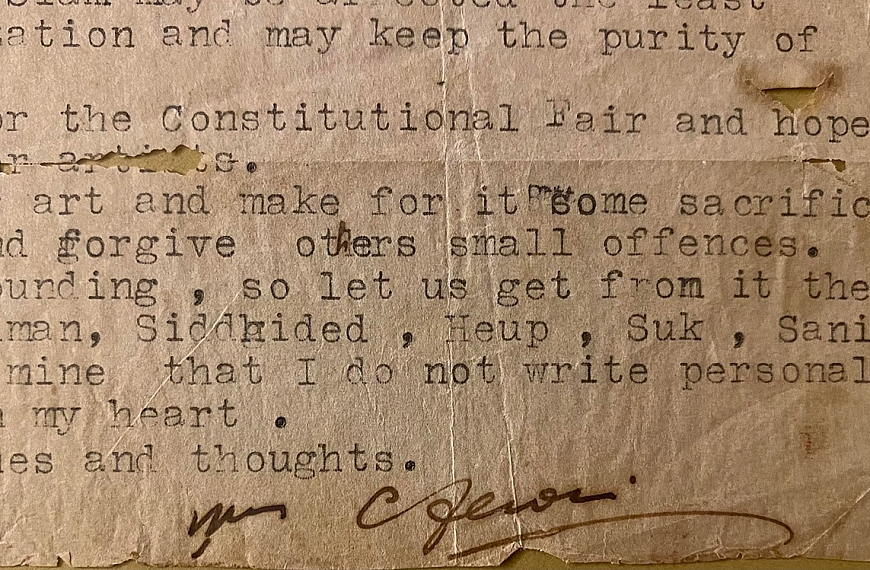 Siam may be affected the least
ation and may keep the purity of
or the Constitutional Fair and hope
r artists.
art and make for it some sacrific
nd forgive others small offences.
ounding , so let us get from it the
man, Siddhided , Heup , Suk , Sani
mine that I do not write personal
my heart .
es and thoughts.
C Feroci